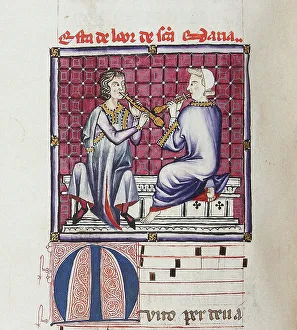 Esta de loor de scã Maria.
Muito per deuia